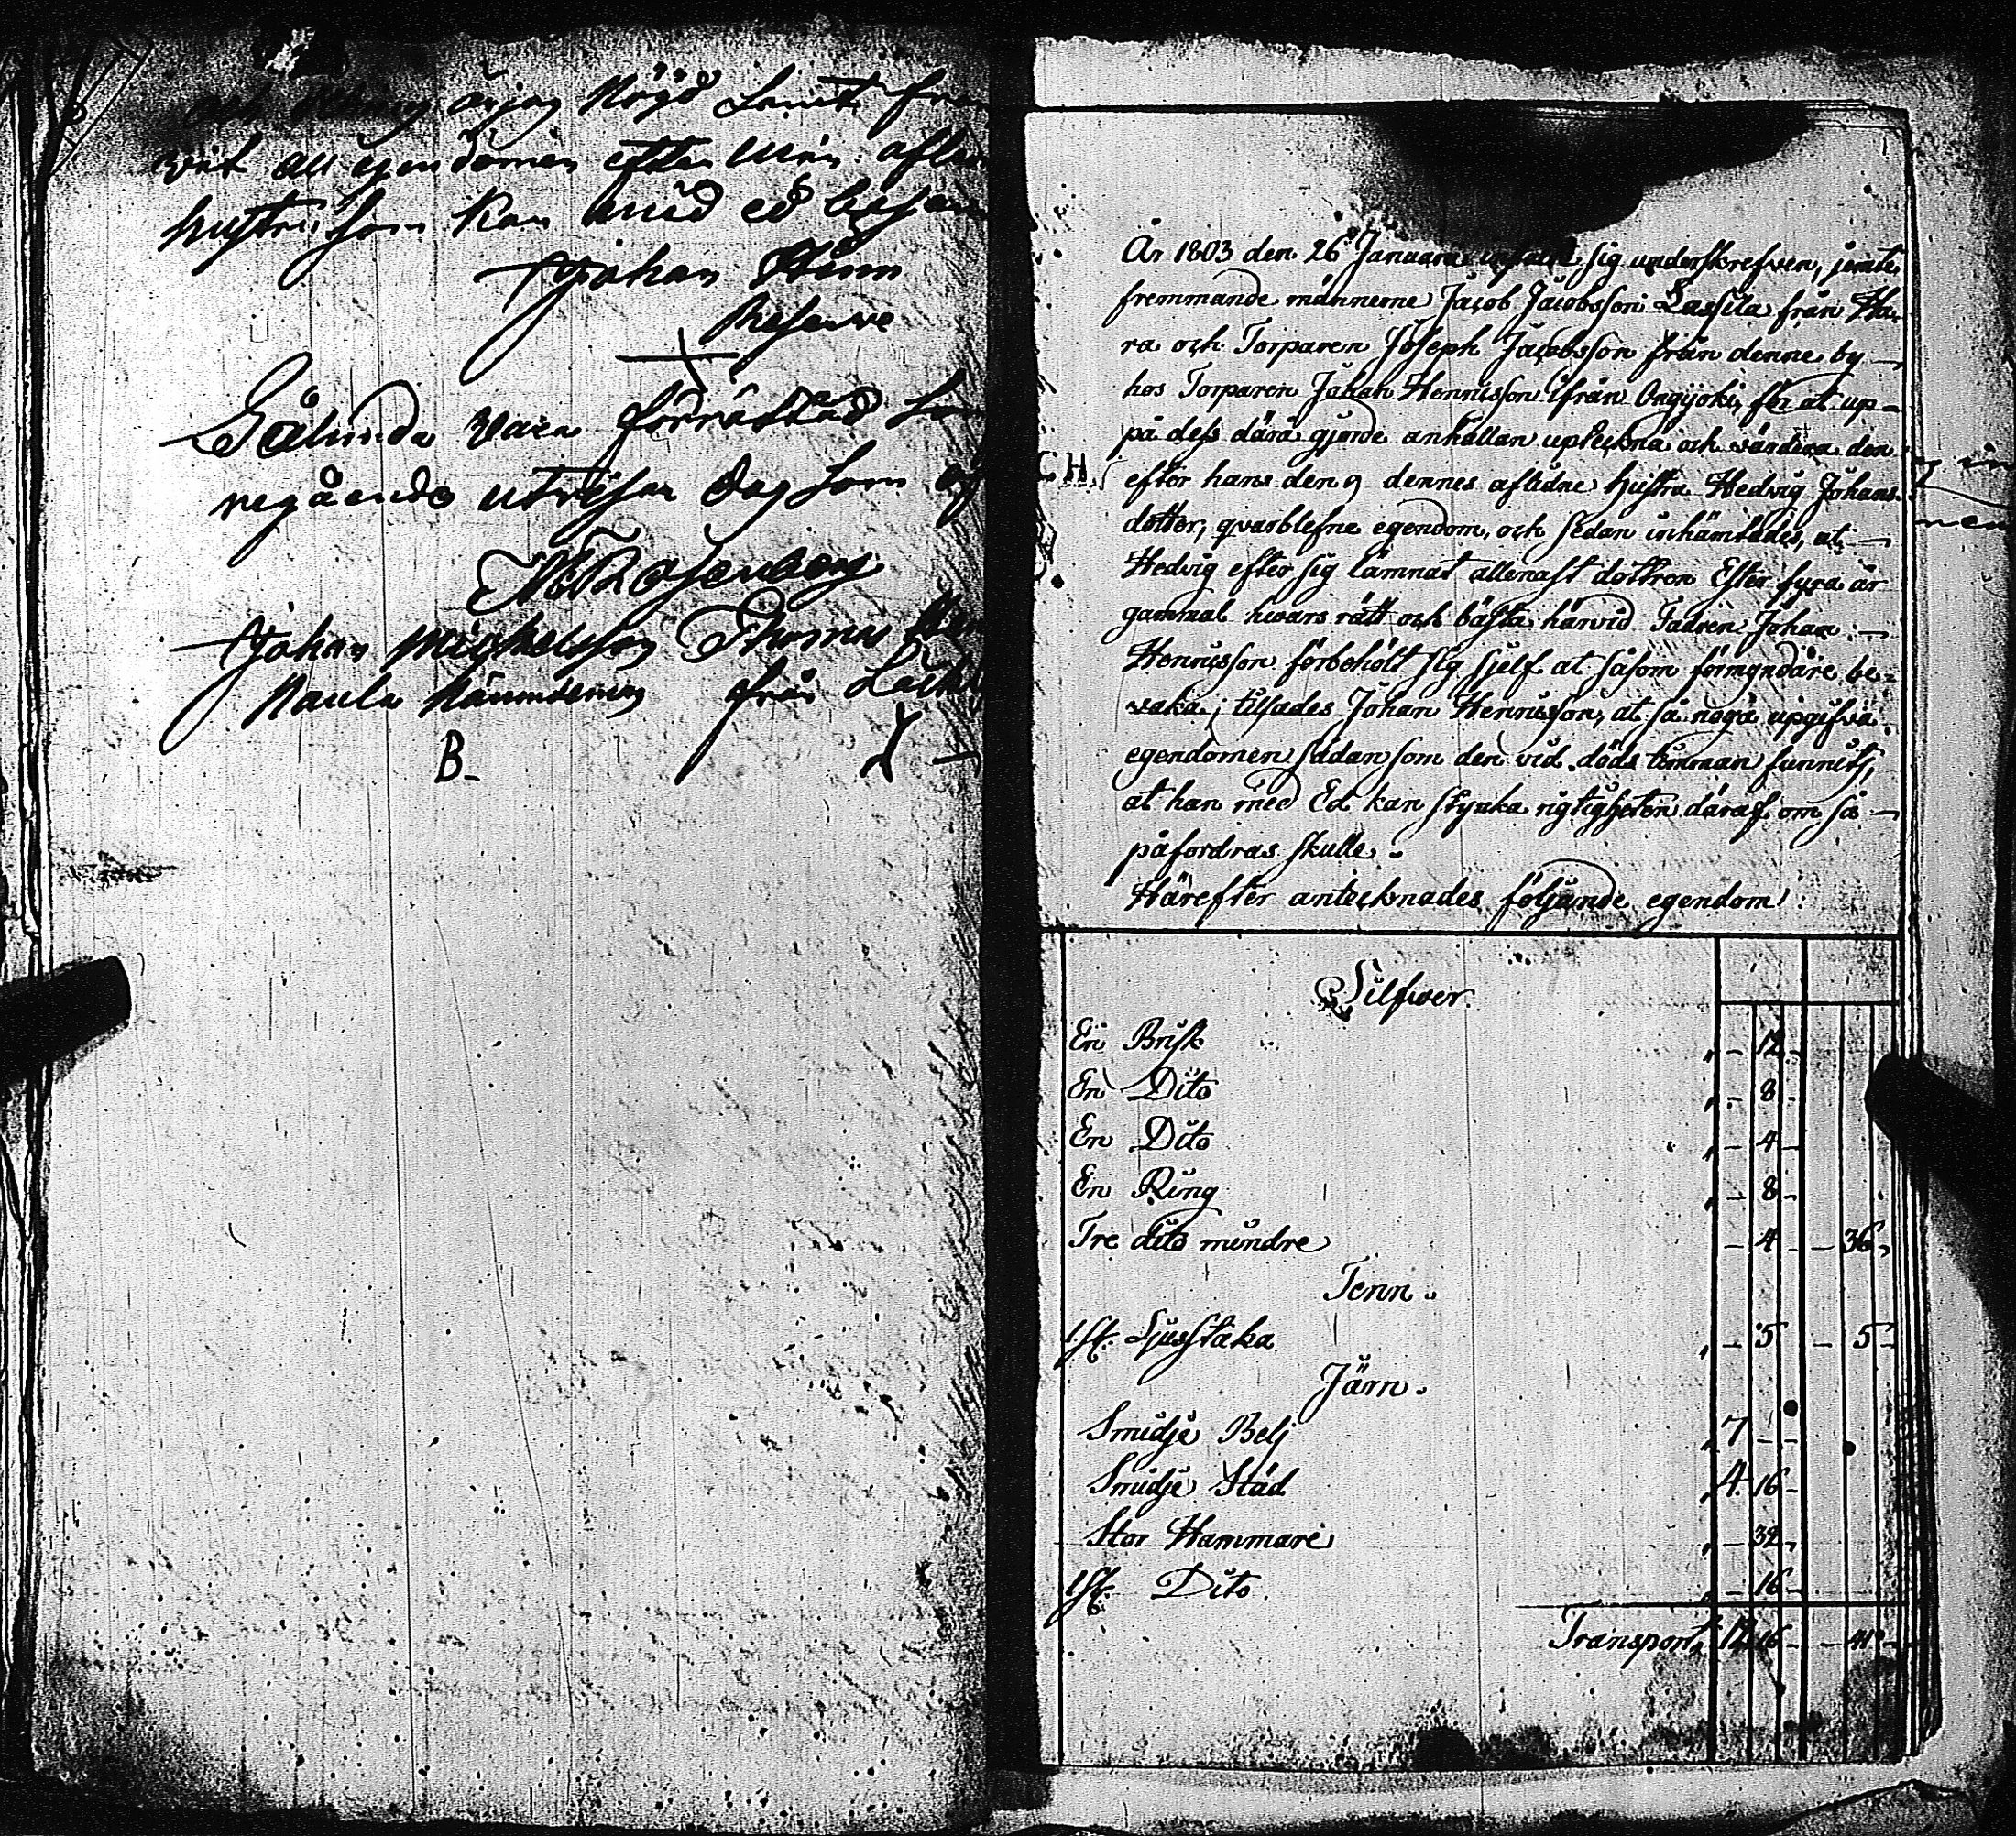 är jag Nögd Samt
vist all egendomen efter Min
hustru Som Kan med ed
Johan
Reserve
Sålunda vara förrättad
regående utvisar dag Som
Rosenberg
Johan Michelsson Thomas
Kaula Nämndeman från
B.
År 1803 den 26 Januarii sig underskrefven, jemte
fremmande männerne Jacob Jacobsson Lassila från Ha-
ra och Torparen Joseph Jacobsson från denne by
hos Torparen Johan Henricsson ifrån Ongijoki, för at up-
på dess därå gjorde anhållan uptekna och värdera den
C H
efter hans den 9 dennes aflidne hustru Hedvig Johans-
dotter, qvarblefne egendom, och sedan inhämtades, at
Hedvig efter sig lämnat allenast dottren Ester fyra år
gammal hvars rätt och bästa härvid Fadren Johan
Henricsson förbehölt sig sjelf at såsom förmyndare be-
vaka; tilsades Johan Henricsson, at så noga upgifva
egendomen sådan som den vid döds timman funnits,
at han med Ed kan styrka rigtigheten däraf om så
påfordras skulle.
Härefter antecknades följande egendom:
Silfwer.
En Brisk " - 12 -
En Dito " - 8 -
En Dito " - 4 -
En Ring " - 8 -
Tre dito mindre - 4 - - 36 "
Tenn.
1 st. Ljusstaka " - 5 - 5 -
Järn.
Smidje Belj " 7 - -
Smidje Städ " 4. 16 -
Stor Hammare " - 32 "
1 st. Dito " - 16 -
Transport 12 16 - - 41 -